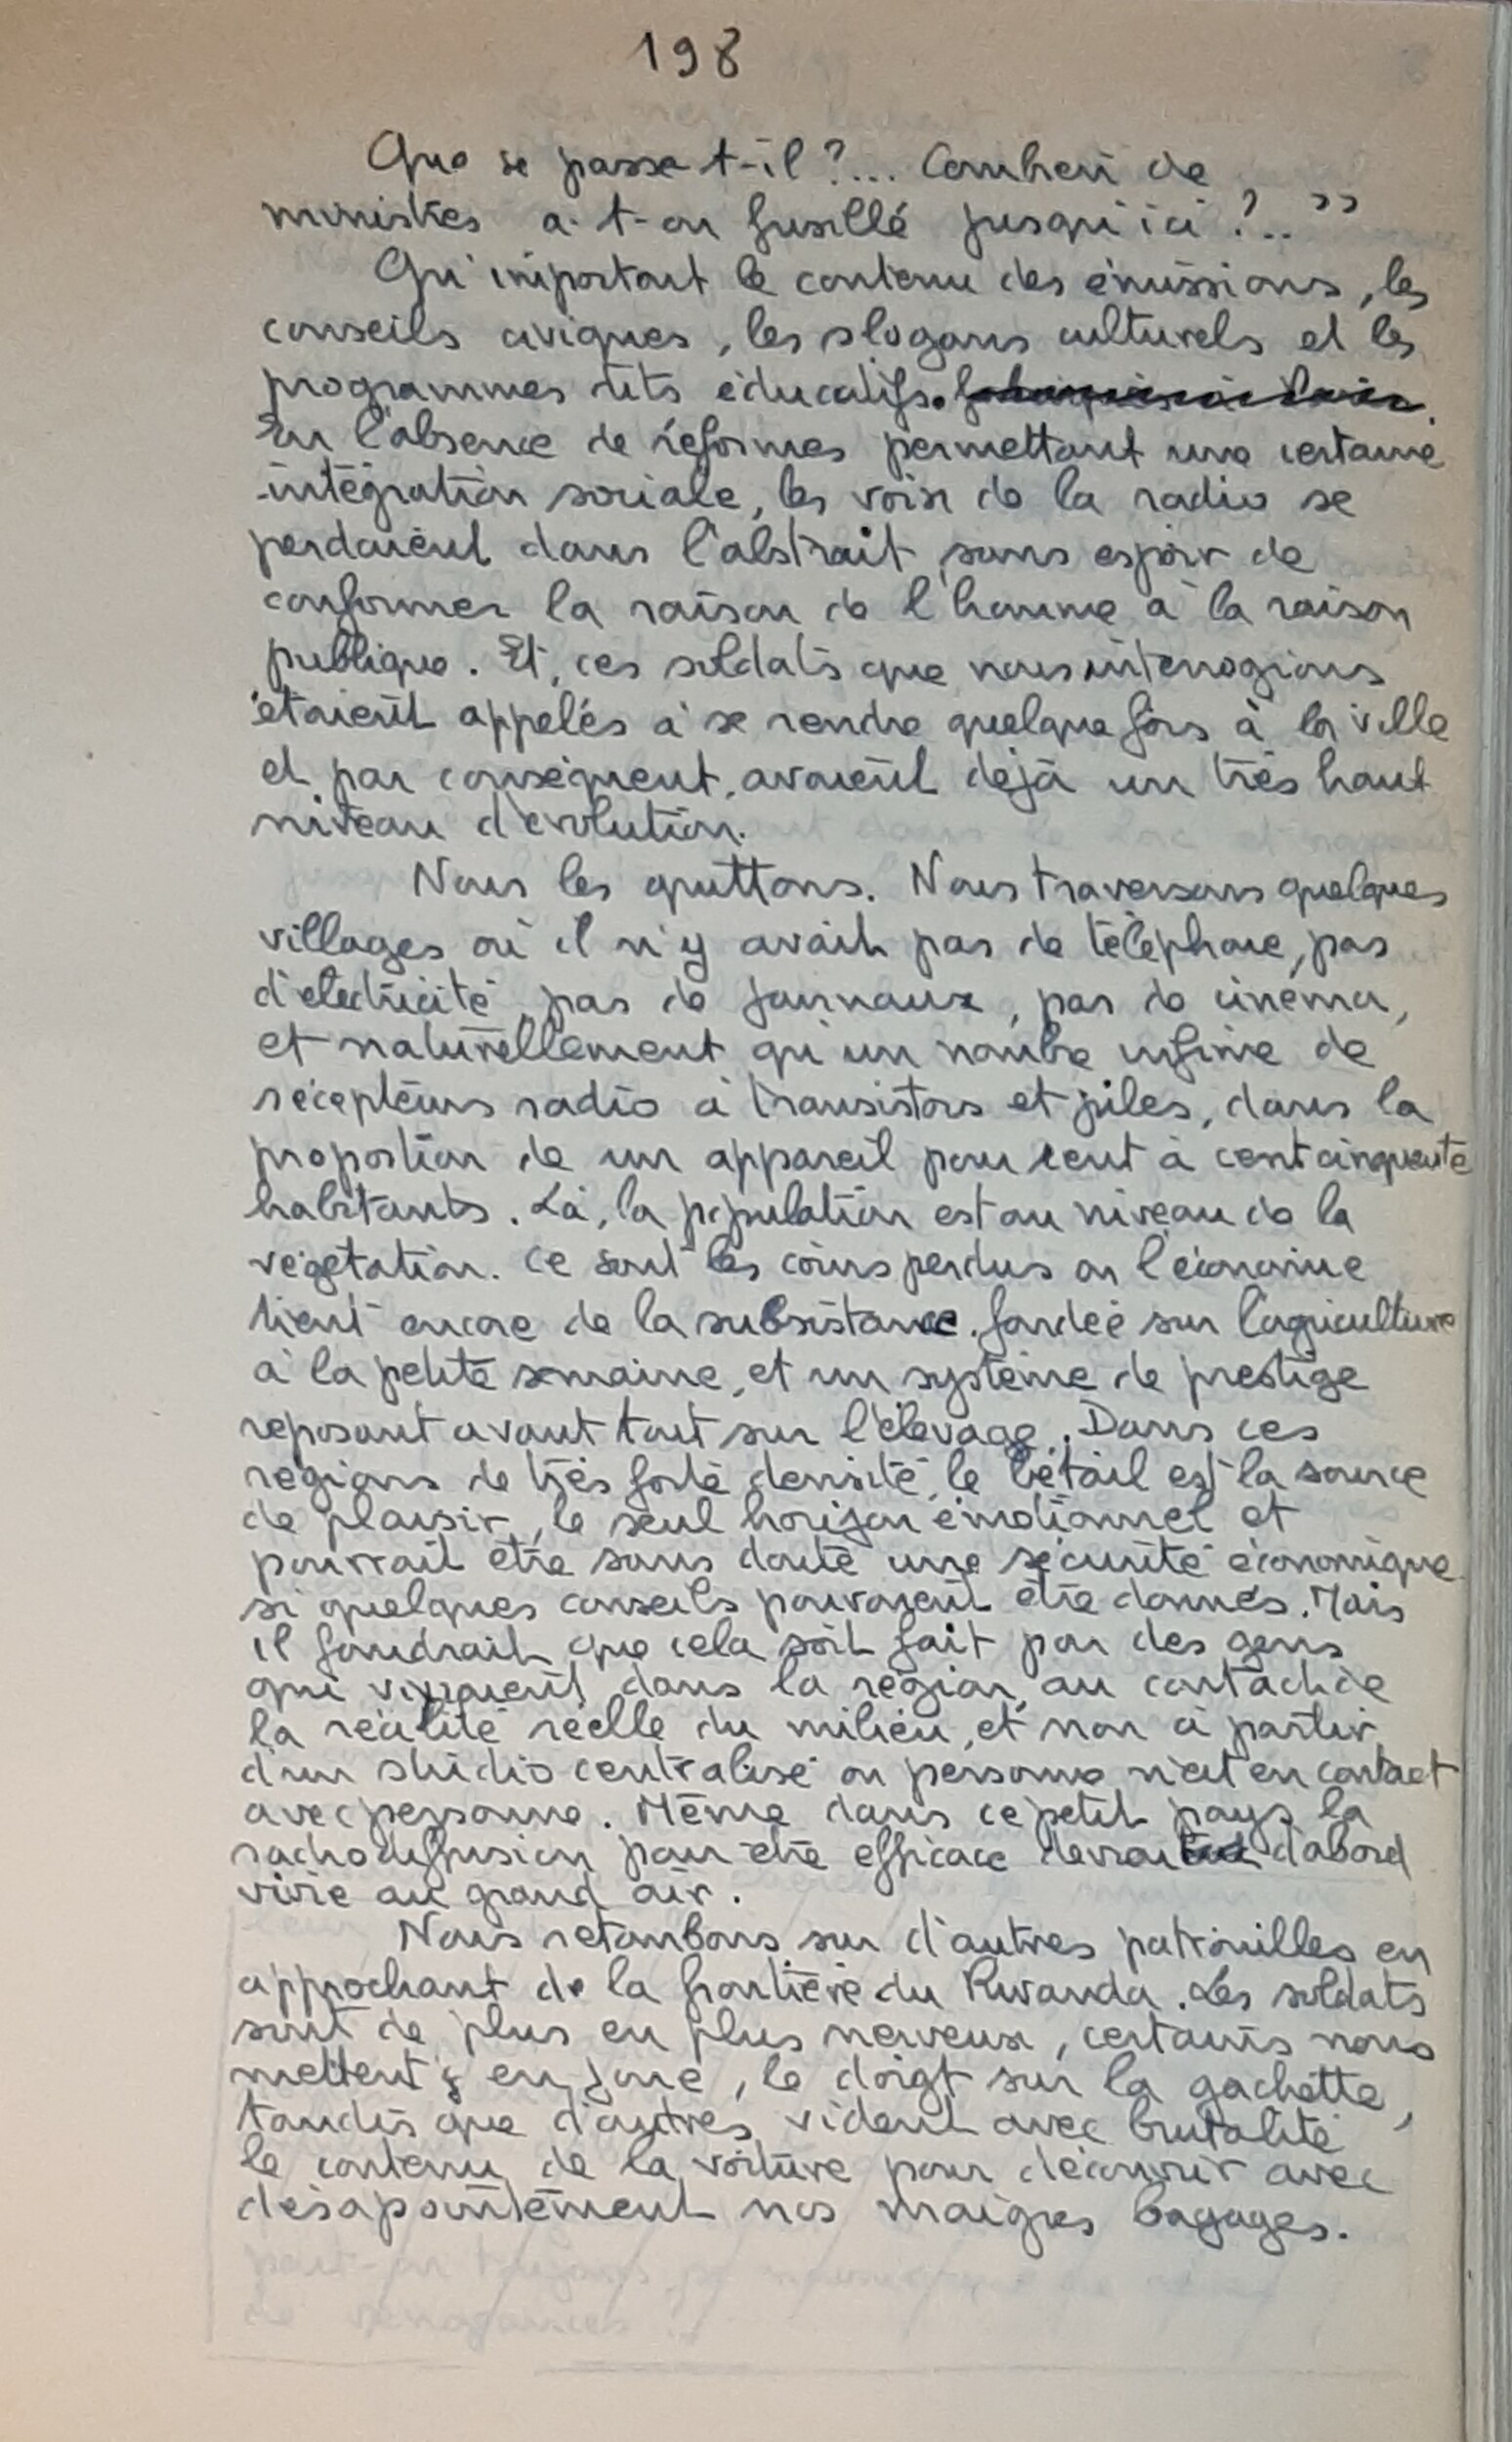 198
Que se passe-t-il ?... Combien de
ministres a-t-on fusillé jusqu'ici ?.. ”
Qu'importait le contenu des émissions, les
conseils civiques, les slogans culturels et les
programmes dits éducatifs.
En l'absence de réformes permettant une certaine
intégration sociale, les voix de la radio se
perdaient dans l'abstrait, sans espoir de
conformer la raison de l'homme à la raison
publique. Et, ces soldats que nous interrogions
étaient appelés à se rendre quelque fois à la ville
et par conséquent, avaient déjà un très haut
niveau d'évolution.
Nous les quittons. Nous traversons quelques
villages où il n'y avait pas de téléphone, pas
d'electricité, pas de journaux, pas de cinema,
et naturellement qu'un nombre infime de
récepteurs radio à transistors et piles, dans la
proportion de un appareil pour cent à cent cinquante
habitants. Là, la population est au niveau de la
végétation. Ce sont les coins perdus où l'économie
tient encore de la subsistance, fondée sur l'agriculture
à la petite semaine, et un système de prestige
reposant avant tout sur l'élevage. Dans ces
régions de très forte densité, le bétail est la source
de plaisir, le seul horizon émotionnel et
pourrait être sans doute une sécurité économique
si quelques conseils pouvaient être donnés. Mais
il faudrait que cela soit fait par des gens
qui vivraient dans la région, au contact de
la réalité réelle du milieu, et non à partir
d'un studio centralisé où personne n'est en contact
avec personne. Même dans ce petit pays la
radiodiffusion pour être efficace devrait d'abord
vivre au grand air.
Nous retombons sur d'autres patrouilles en
approchant de la frontière du Rwanda. Les soldats
sont de plus en plus nerveux, certains nous
mettent en joue, le doigt sur la gachette,
tandis que d'autres vident avec brutalité
le contenu de la voiture pour découvrir avec
désapointement nos maigres bagages.